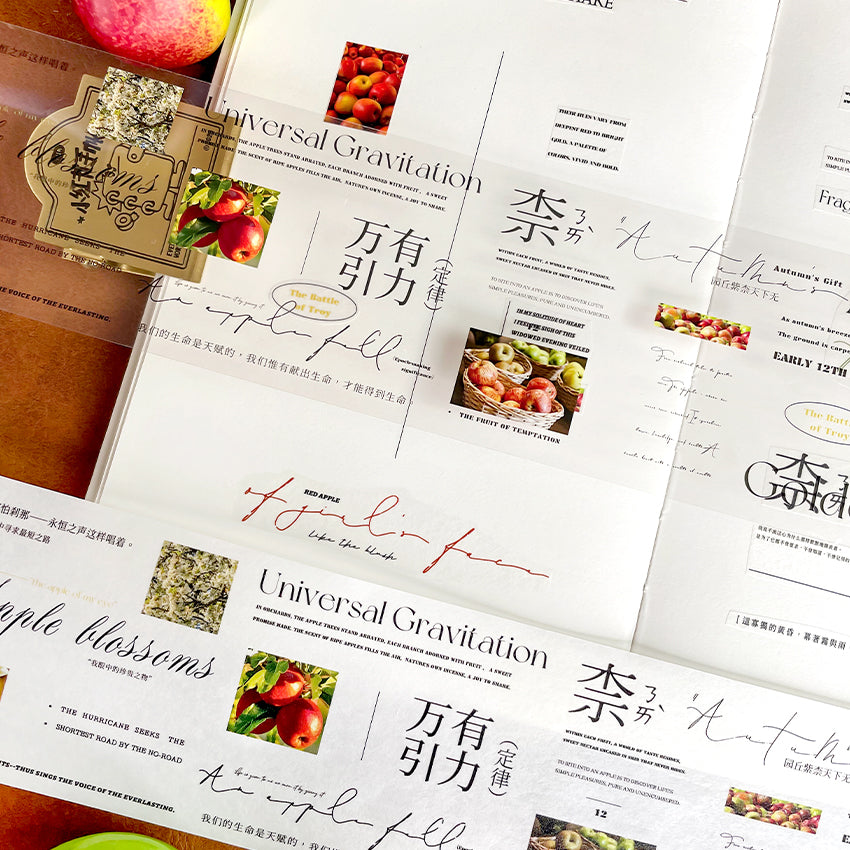 SHARE
恒之声这样唱着。
THEIR HUES VARY FROM
DEEPEST RED TO BRIGHT
GOLD, A PALETTE OF
COLORS, VIVID AND BOLD.
Universal Gravitation
IN ORCHARDS, THE APPLE TREES STAND ARRAYED, EACH BRANCH ADORNED WITH FRUIT, A SWEET
PROMISE MADE. THE SCENT OF RIPE APPLES FILLS THE AIR, NATURE'S OWN INCENSE, A JOY TO SHARE.
blossoms
THE HURRICANE SEEKS THE
SHORTEST ROAD BY THE NO-ROAD
THE VOICE OF THE EVERLASTING.
万有
引力
(定律)
The Battle
of Troy
An apple fell
(Epoch-making
significance)
我们的生命是天赋的，我们惟有献出生命，才能得到生命
柰
ㄋㄞ
WITHIN EACH FRUIT, A WORLD OF TASTE RESIDES,
SWEET NECTAR ENCASED IN SKIN THAT NEVER HIDES.
TO BITE INTO AN APPLE IS TO DISCOVER LIFE'S
SIMPLE PLEASURES, PURE AND UNENCUMBERED.
IN MY SOLITUDE OF HEART
I FEEL THE SIGH OF THIS
WIDOWED EVENING VEILED
THE FRUIT OF TEMPTATION
"Autumn's
园丘紫柰天下无
Autumn's Gift
As autumn's breeze
The ground is carpe
EARLY 12TH
Frag
The Battle
of Troy
柰
Golde
[這寡獨的黄昏，幕著霧與雨
RED APPLE
of girl's face
Like the blush
怕刹那——永恒之声这样唱着。
中寻求最短之路
"The apple of my eye"
apple blossoms
"我眼中的珍贵之物"
THE HURRICANE SEEKS THE
SHORTEST ROAD BY THE NO-ROAD
NTS--THUS SINGS THE VOICE OF THE EVERLASTING.
Universal Gravitation
IN ORCHARDS, THE APPLE TREES STAND ARRAYED, EACH BRANCH ADORNED WITH FRUIT, A SWEET
PROMISE MADE. THE SCENT OF RIPE APPLES FILLS THE AIR, NATURE'S OWN INCENSE, A JOY TO SHARE.
万有
引力
(定律)
An apple fell
我们的生命是天赋的，我们惟
柰
ㄋㄞ
WITHIN EACH FRUIT, A WORLD OF TASTE RESIDES,
SWEET NECTAR ENCASED IN SKIN THAT NEVER HIDES.
TO BITE INTO AN APPLE IS TO DISCOVER LIFE'S
SIMPLE PLEASURES, PURE AND UNENCUMBERED.
12
"Autum
园丘紫柰天下无